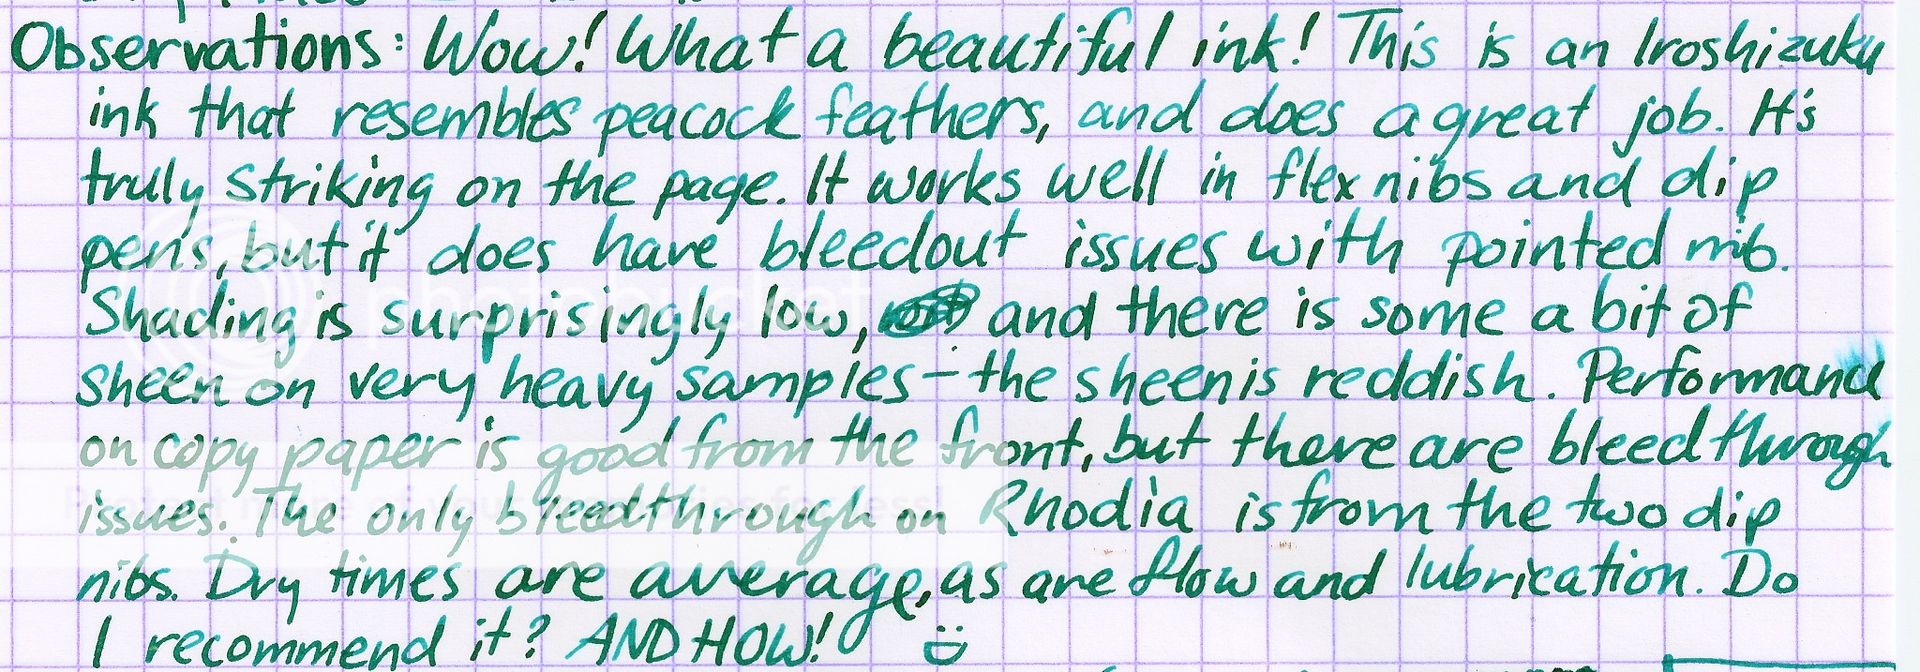 Observations: Wow! What a beautiful ink! This is an Iroshizuku
ink that resembles peacock feathers, and does a great job. It's
truly striking on the page. It works well in flex nibs and dip
pens, but it does have bleedout issues with pointed nib.
Shading is surprisingly low, and there is some a bit of
sheen on very heavy samples - the sheen is reddish. Performance
on copy paper is good from the front, but there are bleedthrough
issues. The only bleedthrough on Rhodia is from the two dip
nibs. Dry times are average, as are flow and lubrication. Do
I recommend it? AND HOW!
photobucket